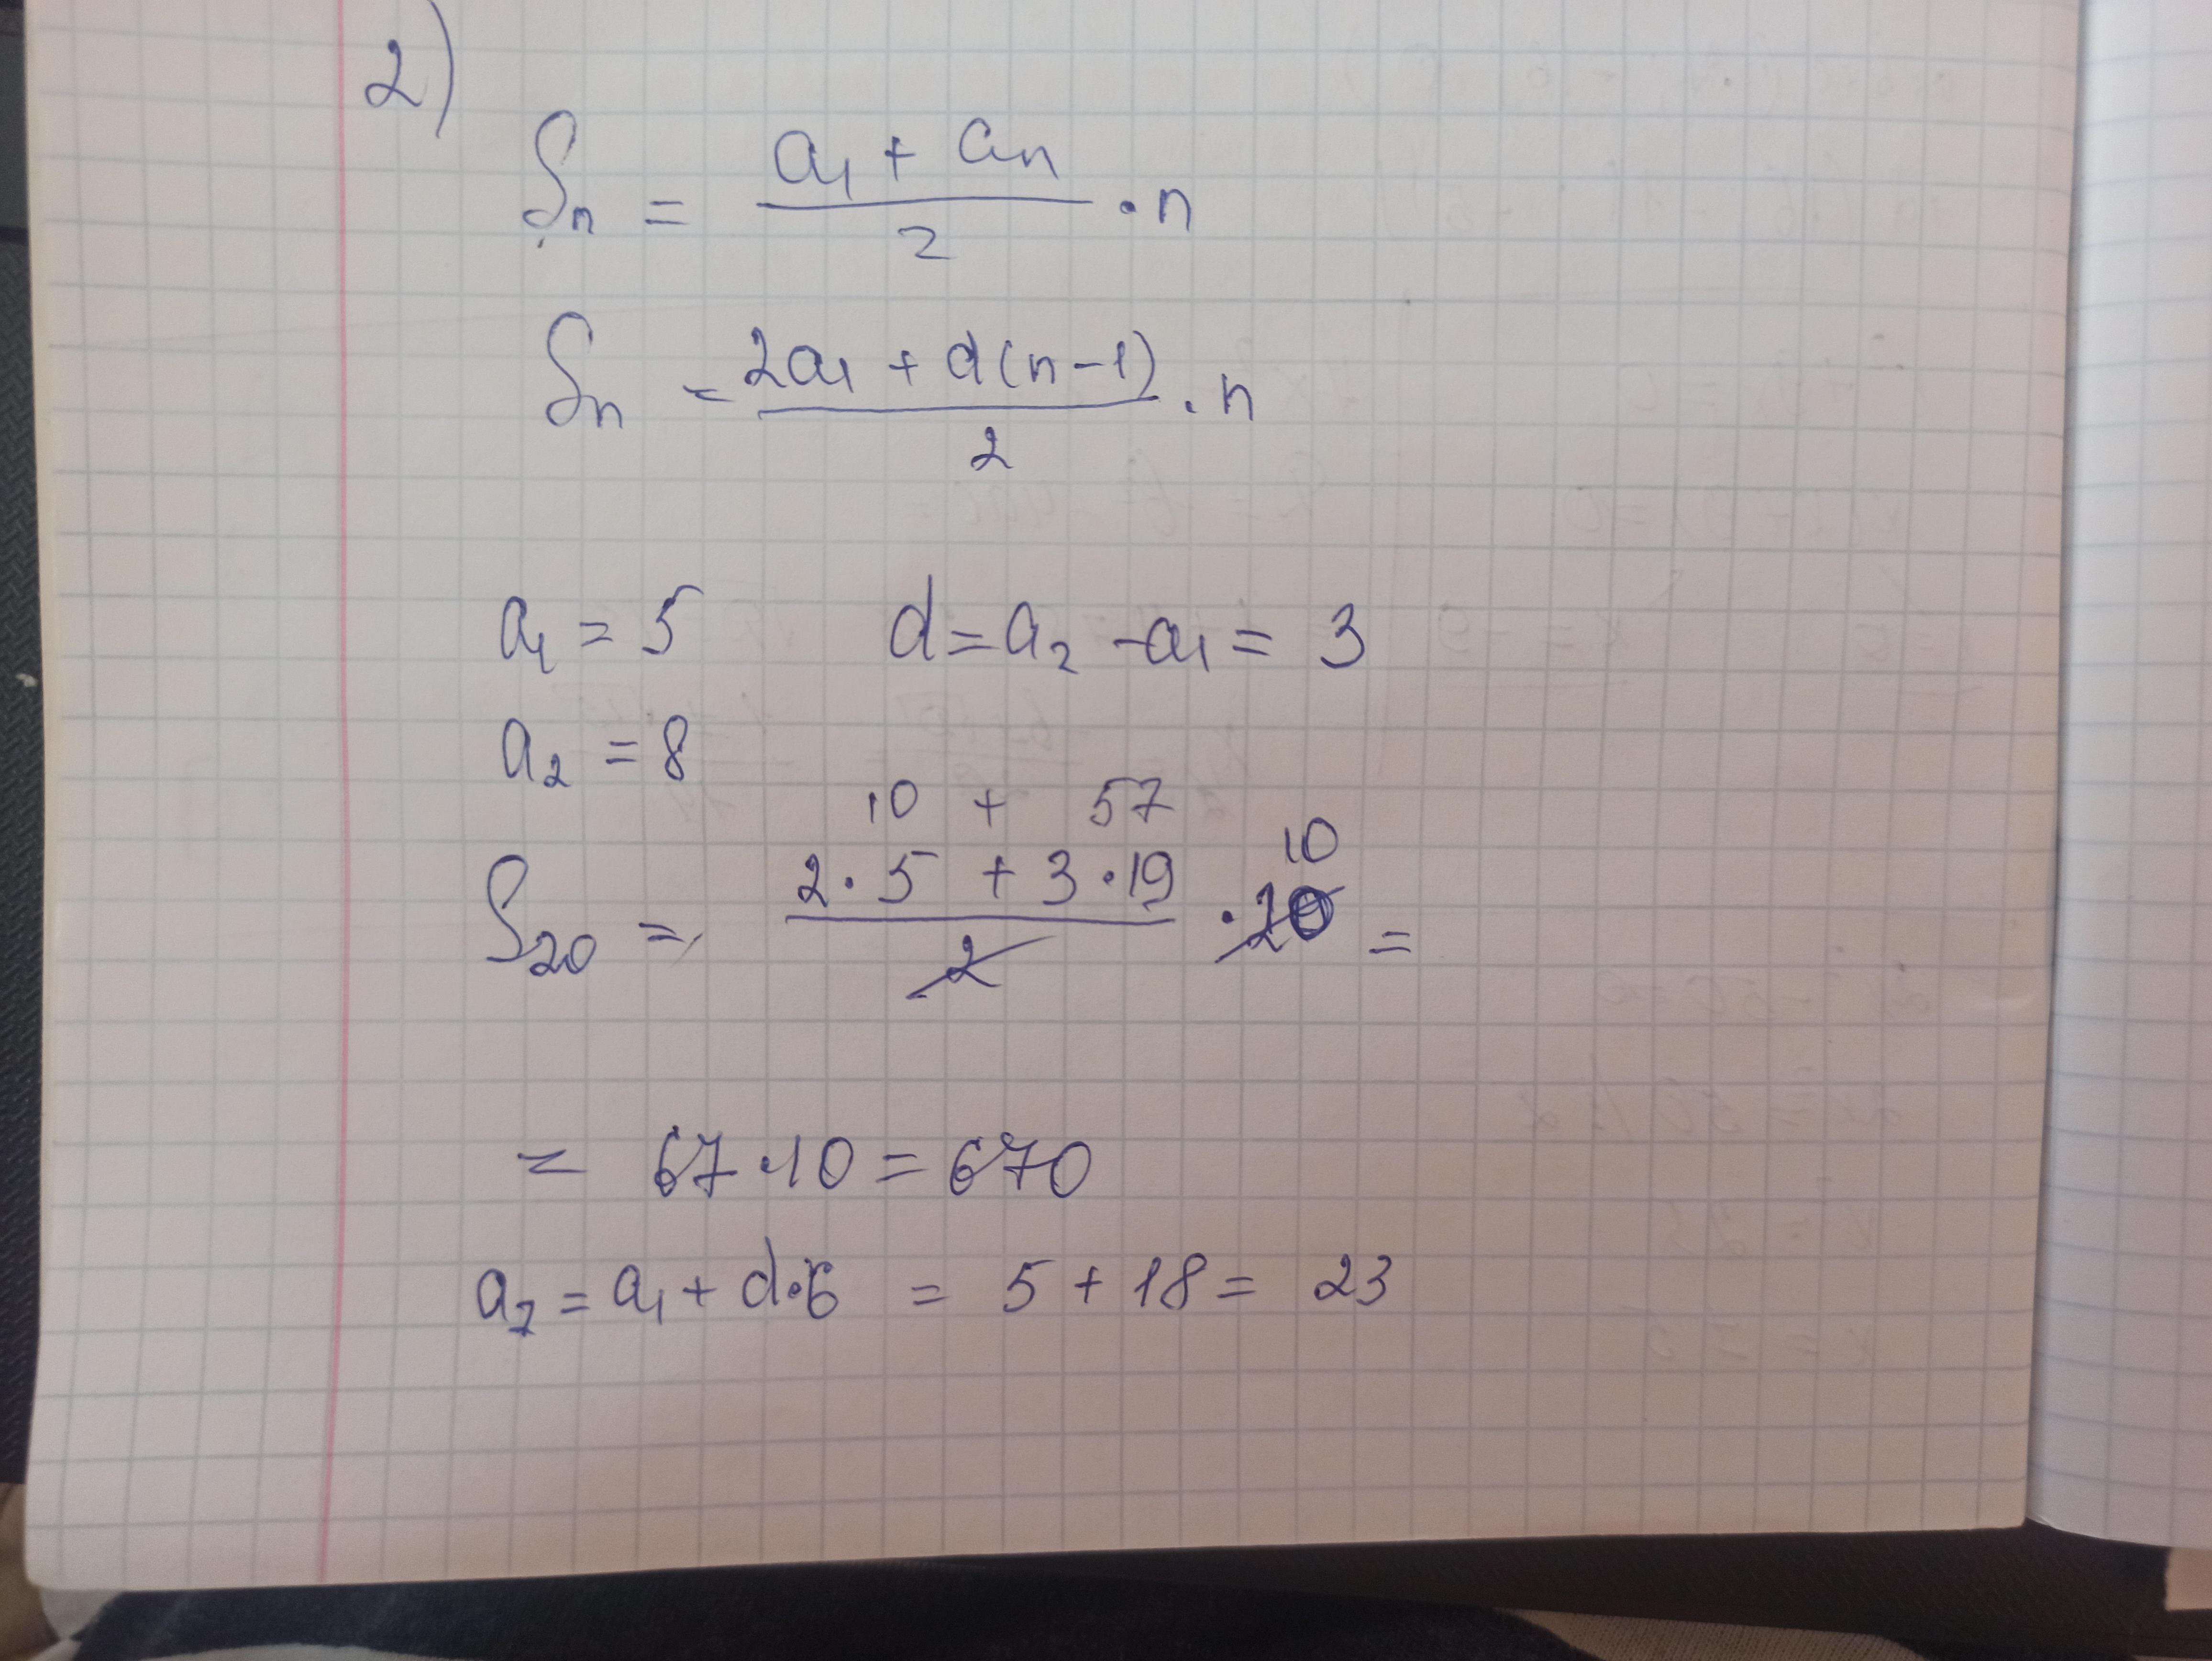 2)
Sn = (a₁ + an)/2 · n
Sn = (2a₁ + d(n-1))/2 · n
a₁ = 5 d = a₂ - a₁ = 3
a₂ = 8
10 + 57 10
S₂₀ = (2·5 + 3·19)/2 · 20 =
= 67·10 = 670
a₇ = a₁ + d·6 = 5 + 18 = 23